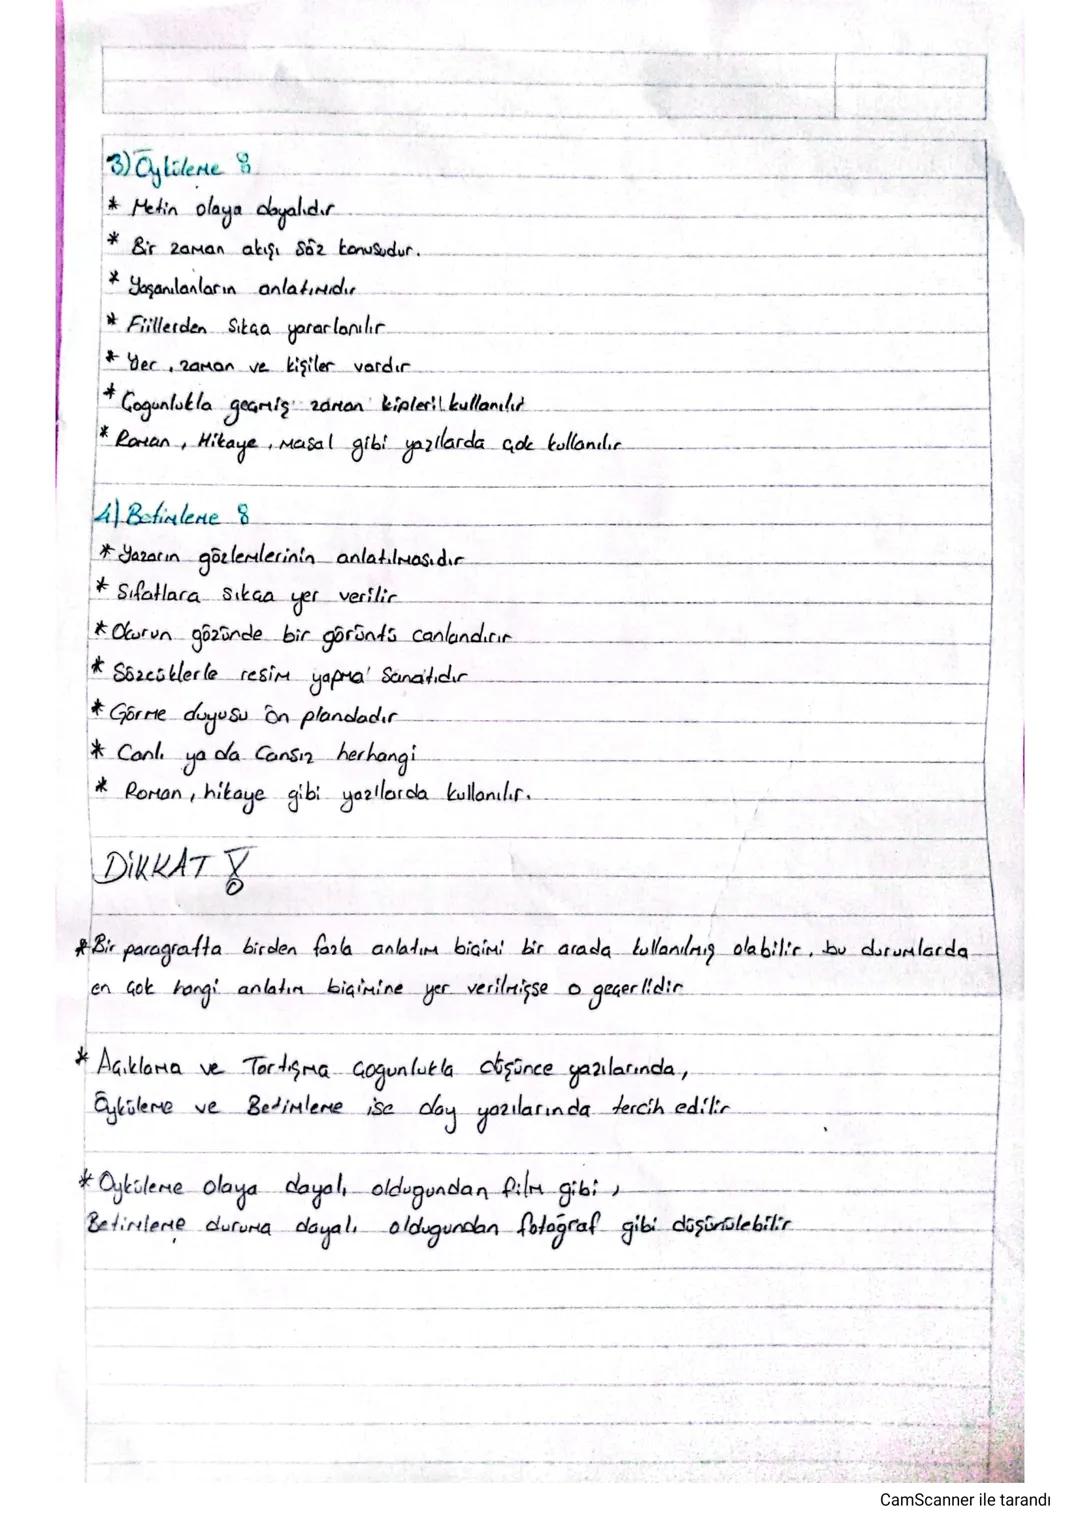 3) Öyküleme :
* Metin olaya dayalıdır
* Bir zaman akışı söz konusudur.
* Yaşanılanların anlatımıdır
* Fiillerden sıkça yararlanılır
* Yer, zaman ve kişiler vardır
* Çogunlukla geçmiş zaman kipleri kullanılır
* Roman, Hikaye, Masal gibi yazılarda çok kullanılır
4) Betimleme :
* Yazarın gözlemlerinin anlatılmasıdır
* Sıfatlara sıkça yer verilir
* Okurun gözünde bir görüntü canlandırır
* Sözcüklerle resim yapma sanatıdır
* Görme duyusu ön plandadır
* Canlı ya da Cansız herhangi
* Roman, hikaye gibi yazılarda kullanılır.
DİKKAT !
* Bir paragrafta birden fazla anlatım biçimi bir arada kullanılmış olabilir, bu durumlarda
en çok hangi anlatım biçimine yer verilmişse o geçerlidir
* Açıklama ve Tartışma çogunlukla düşünce yazılarında,
Öyküleme ve Betimleme ise olay yazılarında tercih edilir
* Öyküleme olaya dayalı oldugundan film gibi,
Betimleme duruma dayalı oldugundan fotoğraf gibi düşünülebilir
CamScanner ile tarandı